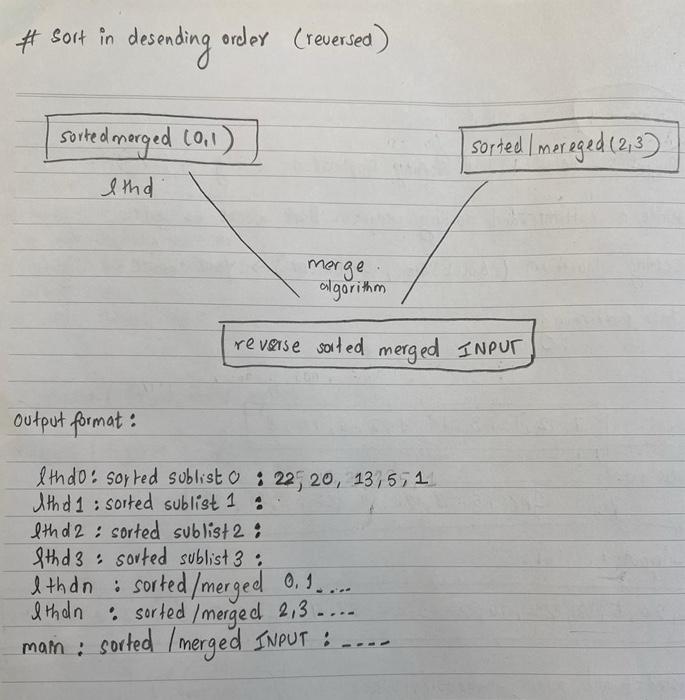 # Sort in desending order (reversed)
sortedmerged (0,1)
sorted / mereged (2,3)
lthd
merge
algorithm
reverse sorted merged INPUT
output format :
lthd0 : sorted sublist 0 : 22, 20, 13, 5, 1
lthd1 : sorted sublist 1 :
lthd2 : sorted sublist 2 :
lthd3 : sorted sublist 3 :
lthdn : sorted/merged 0, 1....
lthdn : sorted /merged 2,3 ....
main : sorted /merged INPUT : ----